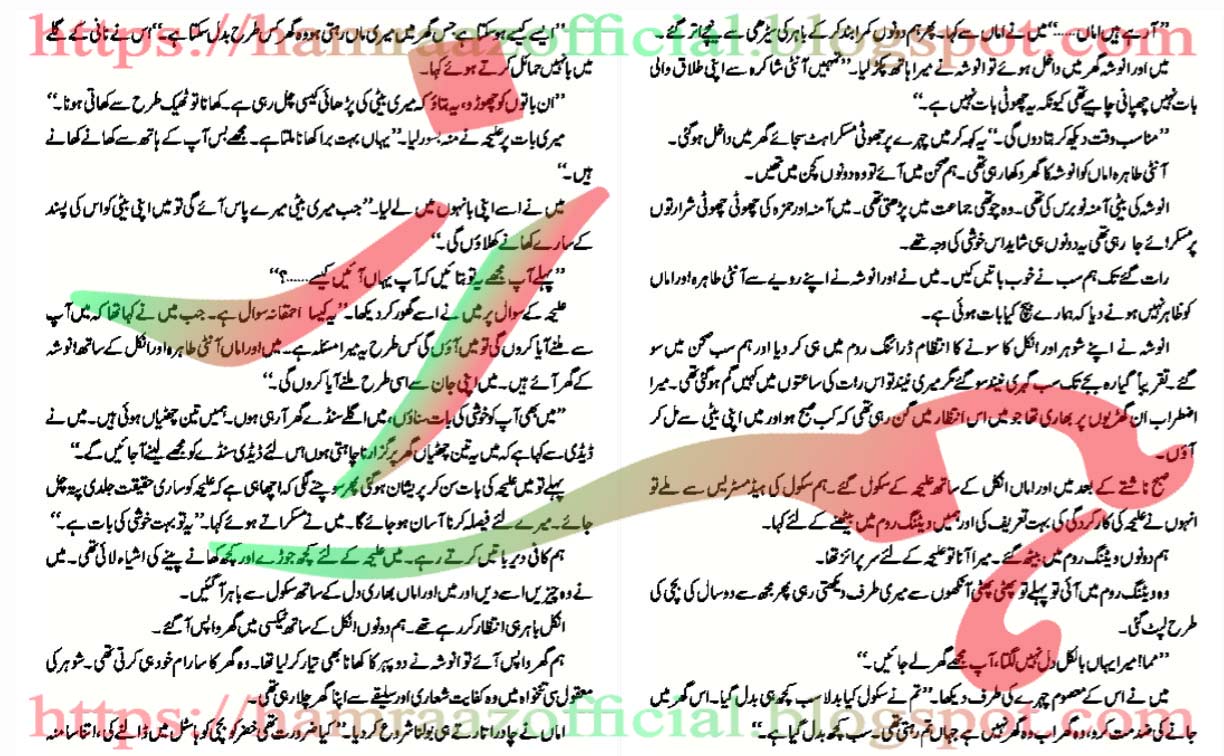 https://hamraazofficial.blogspot.com
"آرہے ہیں اماں......" میں نے اماں سے کہا۔ پھر ہم دونوں کمرا بند کر کے باہر کی سیڑھی سے نیچے اتر گئے۔
میں اور انوشہ گھر میں داخل ہوئے تو انوشہ نے میرا ہاتھ پکڑ لیا۔ "تمہیں آنٹی شاکرہ سے اپنی طلاق والی
بات نہیں چھپانی چاہیے تھی کیونکہ یہ چھوٹی بات نہیں ہے۔"
"مناسب وقت دیکھ کر بتا دوں گی۔" یہ کہہ کر میں چہرے پر جھوٹی مسکراہٹ سجائے گھر میں داخل ہو گئی۔
آنٹی طاہرہ اماں کو انوشہ کا گھر دکھا رہی تھی۔ ہم صحن میں آئے تو وہ دونوں کچن میں تھیں۔
انوشہ کی بیٹی آمنہ نو برس کی تھی۔ وہ چوتھی جماعت میں پڑھتی تھی۔ میں آمنہ اور حمزہ کی چھوٹی چھوٹی شرارتوں
پر مسکرائے جا رہی تھی یہ دونوں ہی شاید اس خوشی کی وجہ تھے۔
رات گئے تک ہم سب نے خوب باتیں کیں۔ میں نے اور انوشہ نے اپنے رویے سے آنٹی طاہرہ اور اماں
کو ظاہر نہیں ہونے دیا کہ ہمارے بیچ کیا بات ہوئی ہے۔
انوشہ نے اپنے شوہر اور انکل کا سونے کا انتظام ڈرائنگ روم میں ہی کر دیا اور ہم سب صحن میں سو
گئے۔ تقریباً گیارہ بجے تک سب گہری نیند سو گئے مگر میری نیند تو اس رات کی ساعتوں میں کہیں گم ہو گئی تھی۔ میرا
اضطراب ان گھڑیوں پر بھاری تھا جو میں اس انتظار میں گن رہی تھی کہ کب صبح ہو اور میں اپنی بیٹی سے مل کر
آؤں۔
صبح ناشتے کے بعد میں اور اماں انکل کے ساتھ علیحہ کے سکول گئے۔ ہم سکول کی ہیڈ مسٹریس سے ملے تو
انہوں نے علیحہ کی کارکردگی کی بہت تعریف کی اور ہمیں ویٹنگ روم میں بیٹھنے کے لئے کہا۔
ہم دونوں ویٹنگ روم میں بیٹھ گئے۔ میرا آنا تو علیحہ کے لئے سرپرائز تھا۔
وہ ویٹنگ روم میں آئی تو پہلے تو پھٹی پھٹی آنکھوں سے میری طرف دیکھتی رہی پھر مجھ سے دو سال کی بچی کی
طرح لپٹ گئی۔
"مما! میرا یہاں بالکل دل نہیں لگتا، آپ مجھے گھر لے جائیں۔"
میں نے اس کے معصوم چہرے کی طرف دیکھا۔ "تم نے سکول کیا بدلا سب کچھ ہی بدل گیا۔ اس گھر میں
جانے کی ضد مت کرو، وہ گھر اب وہ گھر نہیں ہے جہاں تم رہتی تھی۔ سب کچھ بدل گیا ہے۔"
"ایسے کیسے ہو سکتا ہے جس گھر میں میری ماں رہتی ہو وہ گھر کس طرح بدل سکتا ہے۔" اس نے نانی کے گلے
میں بانہیں حمائل کرتے ہوئے کہا۔
"ان باتوں کو چھوڑو، یہ بتاؤ کہ میری بیٹی کی پڑھائی کیسی چل رہی ہے۔ کھانا تو ٹھیک طرح سے کھاتی ہو نا۔"
میری بات پر علیحہ نے منہ بسور لیا۔ "یہاں بہت برا کھانا ملتا ہے۔ مجھے بس آپ کے ہاتھ سے کھانے کھانے
ہیں۔"
میں نے اسے اپنی بانہوں میں لے لیا۔ "جب میری بیٹی میرے پاس آئے گی تو میں اپنی بیٹی کو اس کی پسند
کے سارے کھانے کھلاؤں گی۔"
"پہلے آپ مجھے یہ تو بتائیں کہ آپ یہاں آئیں کیسے......؟"
علیحہ کے سوال پر میں نے اسے گھور کر دیکھا۔ "یہ کیسا احمقانہ سوال ہے۔ جب میں نے کہا تھا کہ میں آپ
سے ملنے آیا کروں گی تو میں آؤں گی کس طرح یہ میرا مسئلہ ہے۔ میں اور اماں آنٹی طاہرہ اور انکل کے ساتھ انوشہ
کے گھر آئے ہیں۔ میں اپنی جان سے اسی طرح ملنے آیا کروں گی۔"
"میں بھی آپ کو خوشی کی بات سناؤں، میں اگلے سنڈے گھر آ رہی ہوں۔ ہمیں تین چھٹیاں ہوئی ہیں۔ میں نے
ڈیڈی سے کہا ہے کہ میں یہ تین چھٹیاں گھر پر گزارنا چاہتی ہوں اس لئے ڈیڈی سنڈے کو مجھے لینے آ جائیں گے۔"
پہلے تو میں علیحہ کی بات سن کر پریشان ہو گئی پھر سوچنے لگی کہ اچھا ہی ہے کہ علیحہ کو ساری حقیقت جلدی پتہ چل
جائے۔ میرے لئے فیصلہ کرنا آسان ہو جائے گا۔ میں نے مسکراتے ہوئے کہا۔ "یہ تو بہت خوشی کی بات ہے۔"
ہم کافی دیر باتیں کرتے رہے۔ میں علیحہ کے لئے کچھ جوڑے اور کچھ کھانے پینے کی اشیاء لائی تھی۔ میں
نے وہ چیزیں اسے دیں اور میں اور اماں بھاری دل کے ساتھ سکول سے باہر آ گئیں۔
انکل باہر ہی انتظار کر رہے تھے۔ ہم دونوں انکل کے ساتھ ٹیکسی میں گھر واپس آ گئے۔
ہم گھر واپس آئے تو انوشہ نے دوپہر کا کھانا بھی تیار کر لیا تھا۔ وہ گھر کا سارا کام خود ہی کرتی تھی۔ شوہر کی
معقول سی تنخواہ میں وہ کفایت شعاری اور سلیقے سے اپنا گھر چلا رہی تھی۔
اماں نے چادر اتارتے ہی بولنا شروع کر دیا۔ "کیا ضرورت تھی خضر کو بچی کو ہاسٹل میں ڈالنے کی، اتنا سا منہ
https://hamraazofficial.blogspot.com